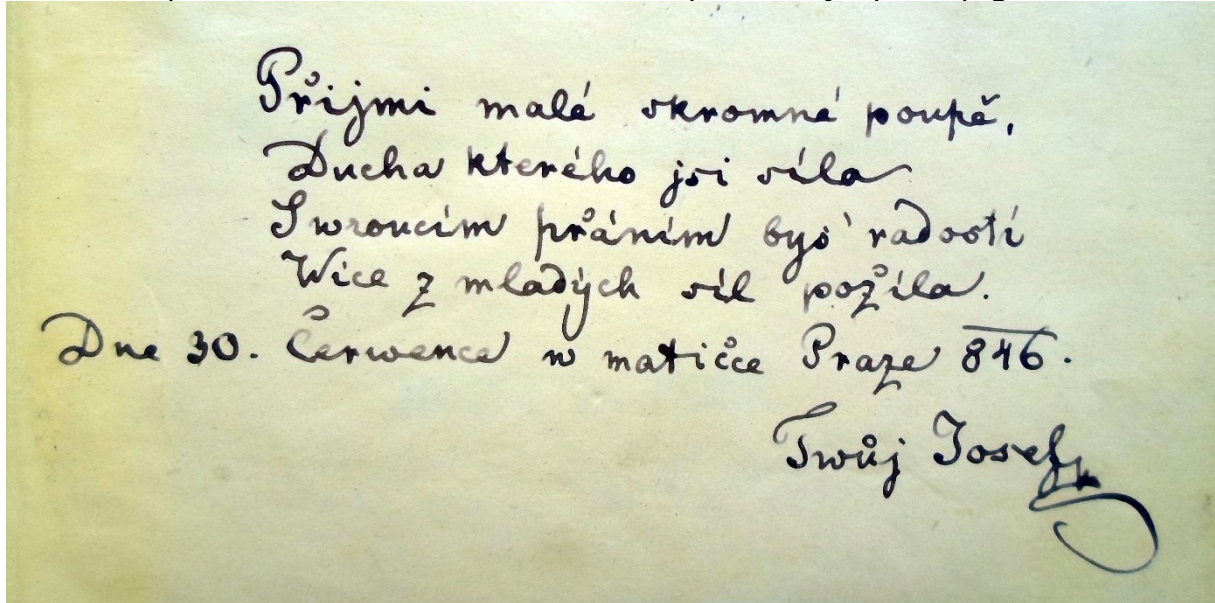 Přijmi malé skromné poupě,
Ducha kterého jsi síla
S wroucím přáním bys' radostí
Wíce z mladých sil požila.
Dne 30. Čerwence w matičce Praze 846.
Twůj Josef